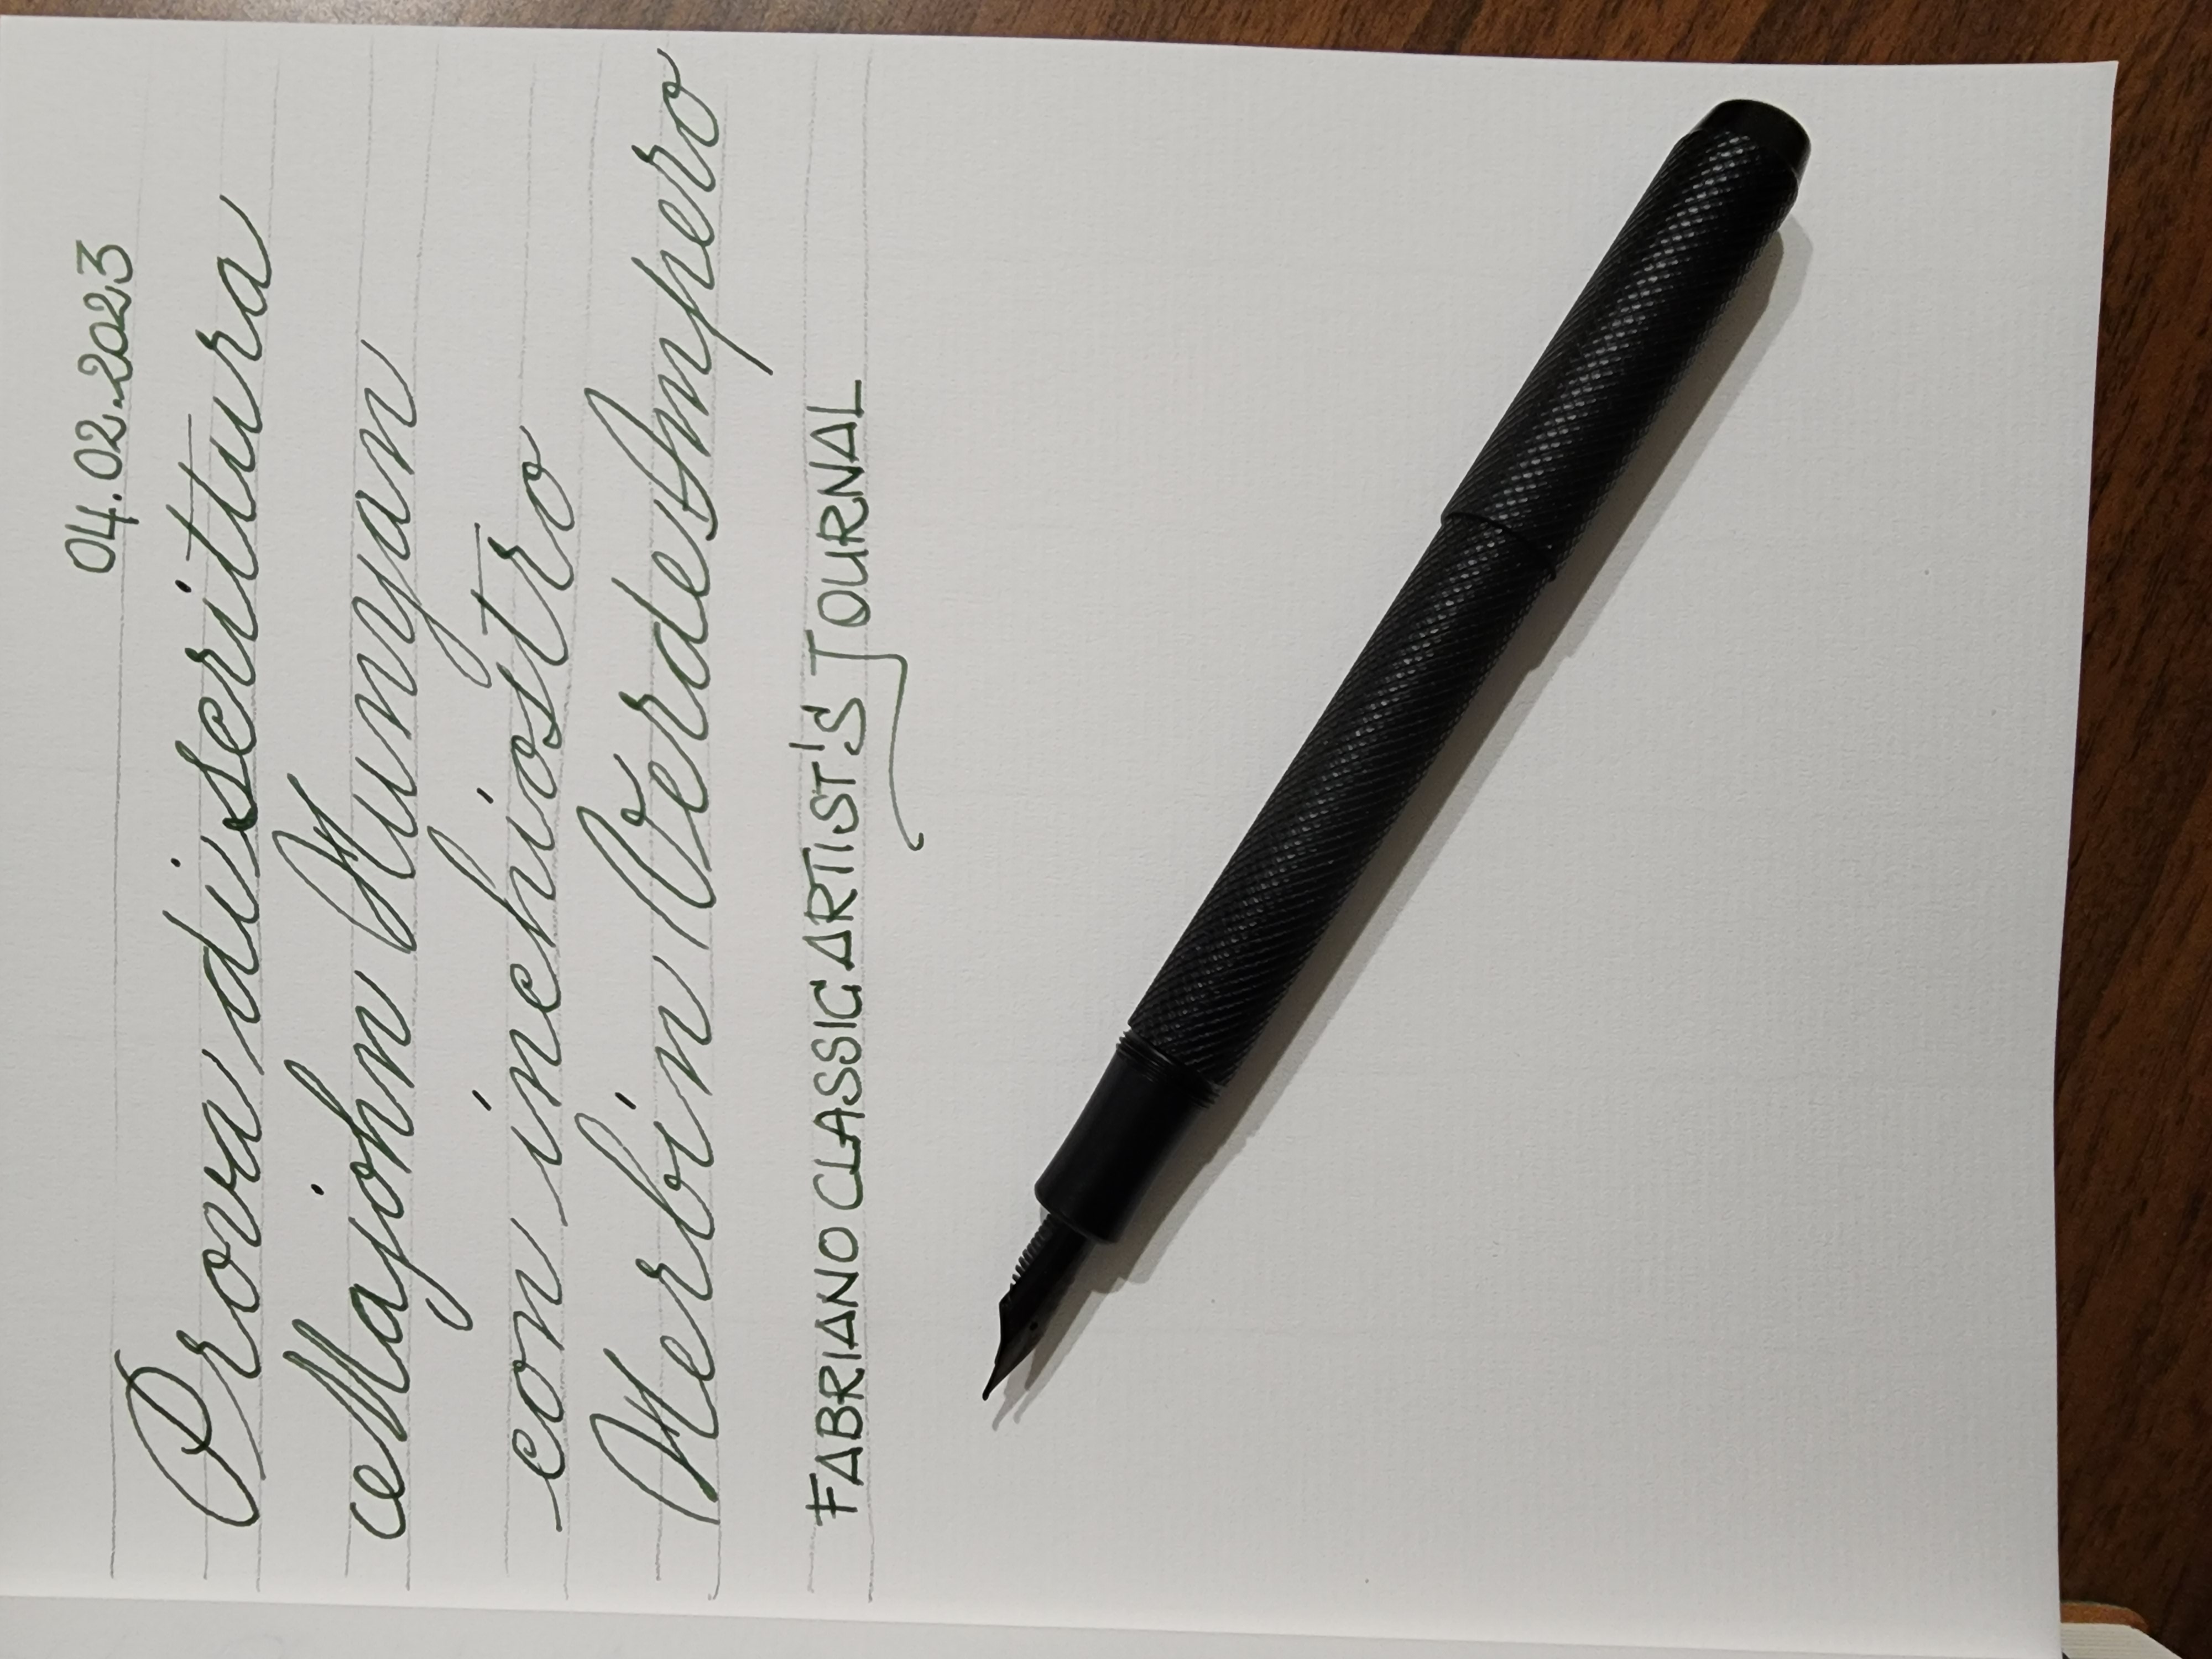 04.02.2023
Prova di scrittura
Majohn Hunyan
con inchiostro
Herbin Verde Ampero
FABRIANO CLASSIC ARTIST'S JOURNAL